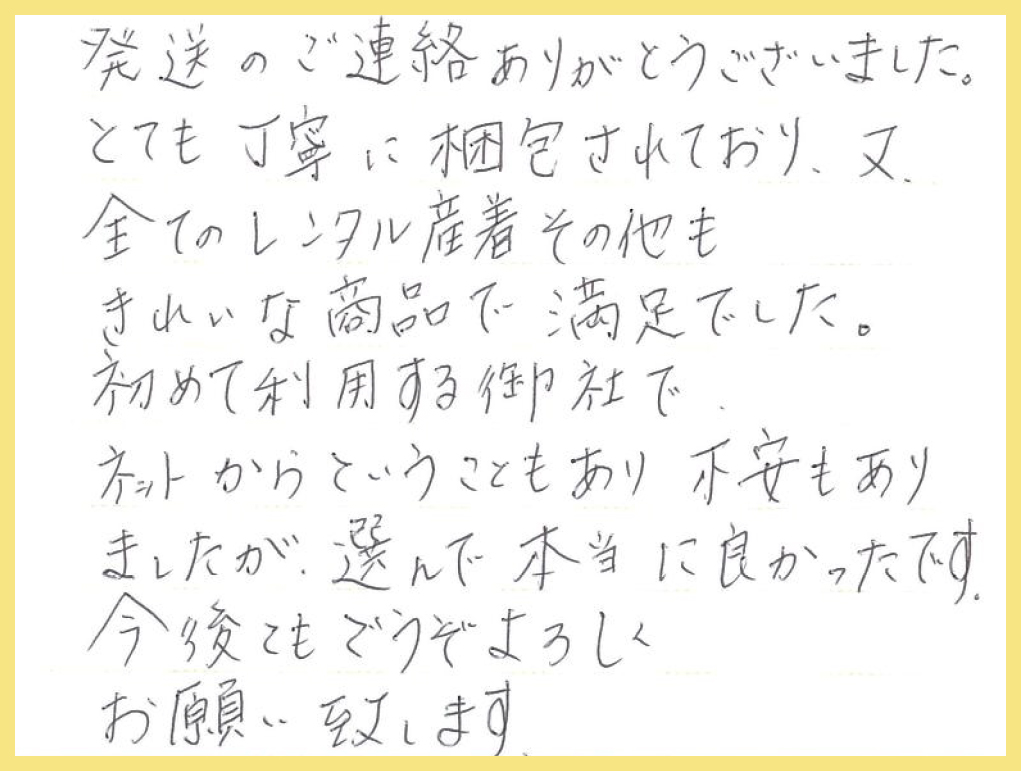 発送のご連絡ありがとうございました。
とても丁寧に梱包されており、又、
全てのレンタル産着その他も
きれいな商品で満足でした。
初めて利用する御社で、
ネットからということもあり不安もあり
ましたが、選んで本当に良かったです。
今後ともどうぞよろしく
お願い致します。